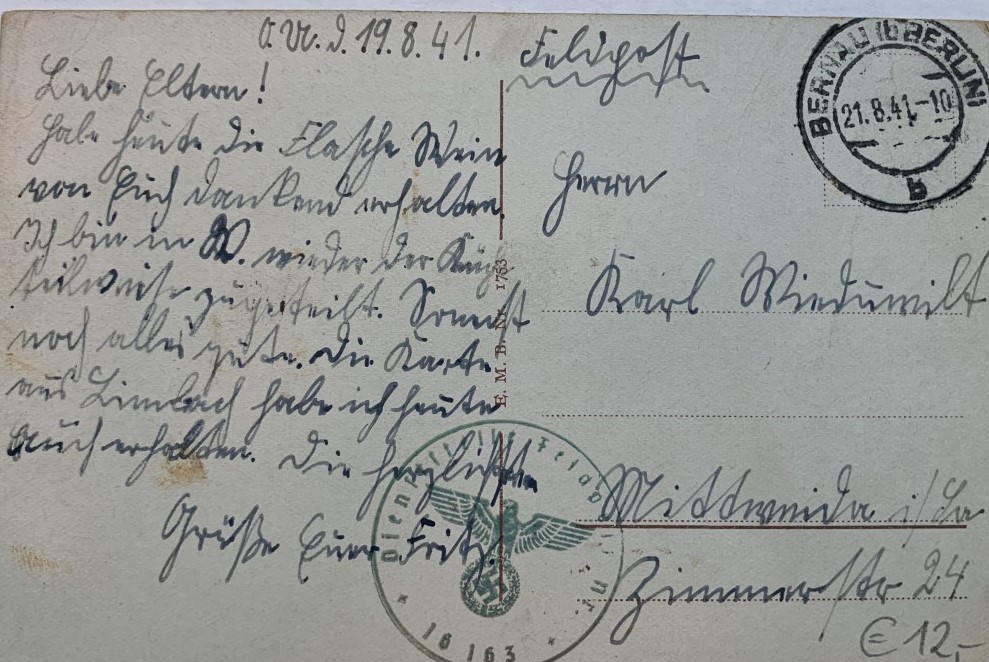 O.U.d. 19.8.41.
Liebe Eltern!
Habe heute die Flasche Wein
von Euch dankend erhalten.
Ich bin in W. wieder der
teilweise zugeteilt. Sonst
noch alles gute. Die Karte
aus Limbach habe ich heute
auch erhalten. Die herzlichsten
Grüße Euer Fritz.
Feldpost
BERNAU (b BERLIN)
21.8.41-10
b
Herrn
Karl Wieduwilt
Mittweida i/Sa
Zimmerstr 24
€ 12,-
E. M. B. Nr. 1753
16163